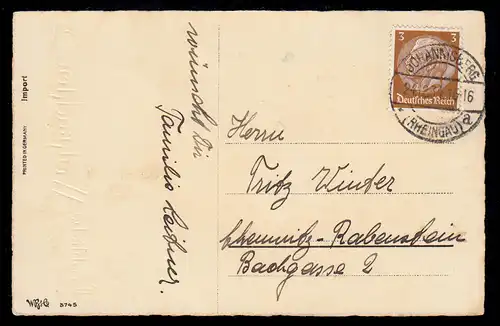 wünscht Dir
Familie Leitner.
Import
PRINTED IN GERMANY
W&G
3745
3 3
Deutsches Reich
JOHANNISBERG
16
a
(RHEINGAU)
Herrn
Fritz Winter
Chemnitz-Rabenstein
Bachgasse 2